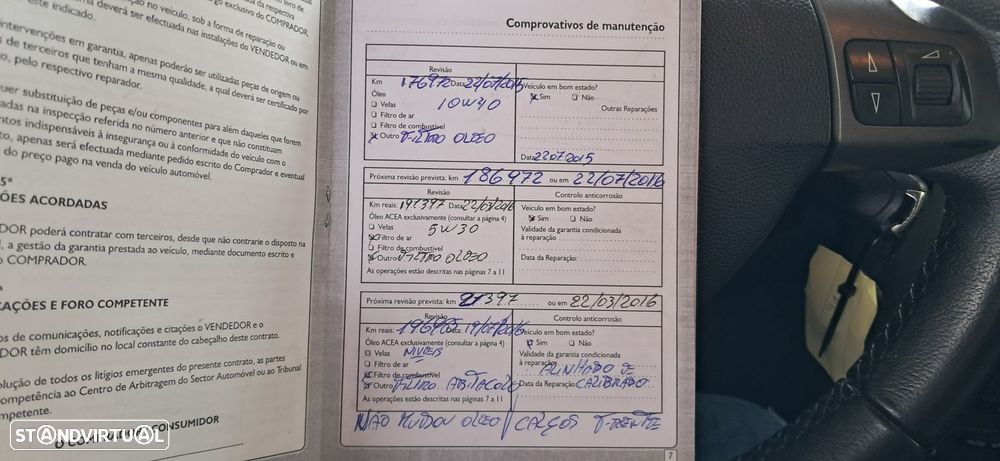 da respectiva
go exclusivo do COMPRADOR.
no veículo, sob a forma de reparação ou
deverá ser efectuada nas instalações do VENDEDOR ou em
este indicado.
intervenções em garantia, apenas poderão ser utilizadas peças de origem ou
de terceiros que tenham a mesma qualidade, a qual deverá ser certificado por
o, pelo respectivo reparador.
uer substituição de peças e/ou componentes para além daqueles que forem
adas na inspecção referida no número anterior e que não constituam
ntos indispensáveis à insegurança ou à conformidade do veículo com o
to, apenas será efectuada mediante pedido escrito do Comprador e eventual
do preço pago na venda do veículo automóvel.
5ª
ÕES ACORDADAS
DOR poderá contratar com terceiros, desde que não contrarie o disposto na
l, a gestão da garantia prestada ao veículo, mediante documento escrito e
o COMPRADOR.
ª
CAÇÕES E FORO COMPETENTE
os de comunicações, notificações e citações o VENDEDOR e o
DOR têm domicílio no local constante do cabeçalho deste contrato.
olução de todos os litígios emergentes do presente contrato, as partes
ompetência ao Centro de Arbitragem do Sector Automóvel ou ao Tribunal
mpetente.
CONSUMIDOR
STANDVIRTUAL
Comprovativos de manutenção
Revisão
Km 176972 Data 22/07/2015
Óleo 10W40
Velas
Filtro de ar
Filtro de combustível
Outro FILTRO OLEO
Veículo em bom estado?
Sim Não
Outras Reparações
Data 22 07 2015
Próxima revisão prevista: km 186972 ou em 22/07/2016
Revisão
Controlo anticorrosão
Km reais: 191397 Data 22/03/2016
Óleo ACEA exclusivamente (consultar a página 4)
Velas 5W30
Filtro de ar
Filtro de combustível
Outro FILTRO OLEO
As operações estão descritas nas páginas 7 a 11
Veículo em bom estado?
Sim Não
Validade da garantia condicionada
à reparação
Data da Reparação:
Próxima revisão prevista: km 21397 ou em 22/03/2016
Revisão
Controlo anticorrosão
Km reais: Data 19/07/2016
Óleo ACEA exclusivamente (consultar a página 4)
Velas NIVEIS
Filtro de ar
Filtro de combustível
Outro FILTRO ABITACOLO
As operações estão descritas nas páginas 7 a 11
Veículo em bom estado?
Sim Não
Validade da garantia condicionada
à reparação ALINHADO E
Data da Reparação CALIBRADO
NÃO MUDOU OLEO / CALÇOS F-FRENTE
7